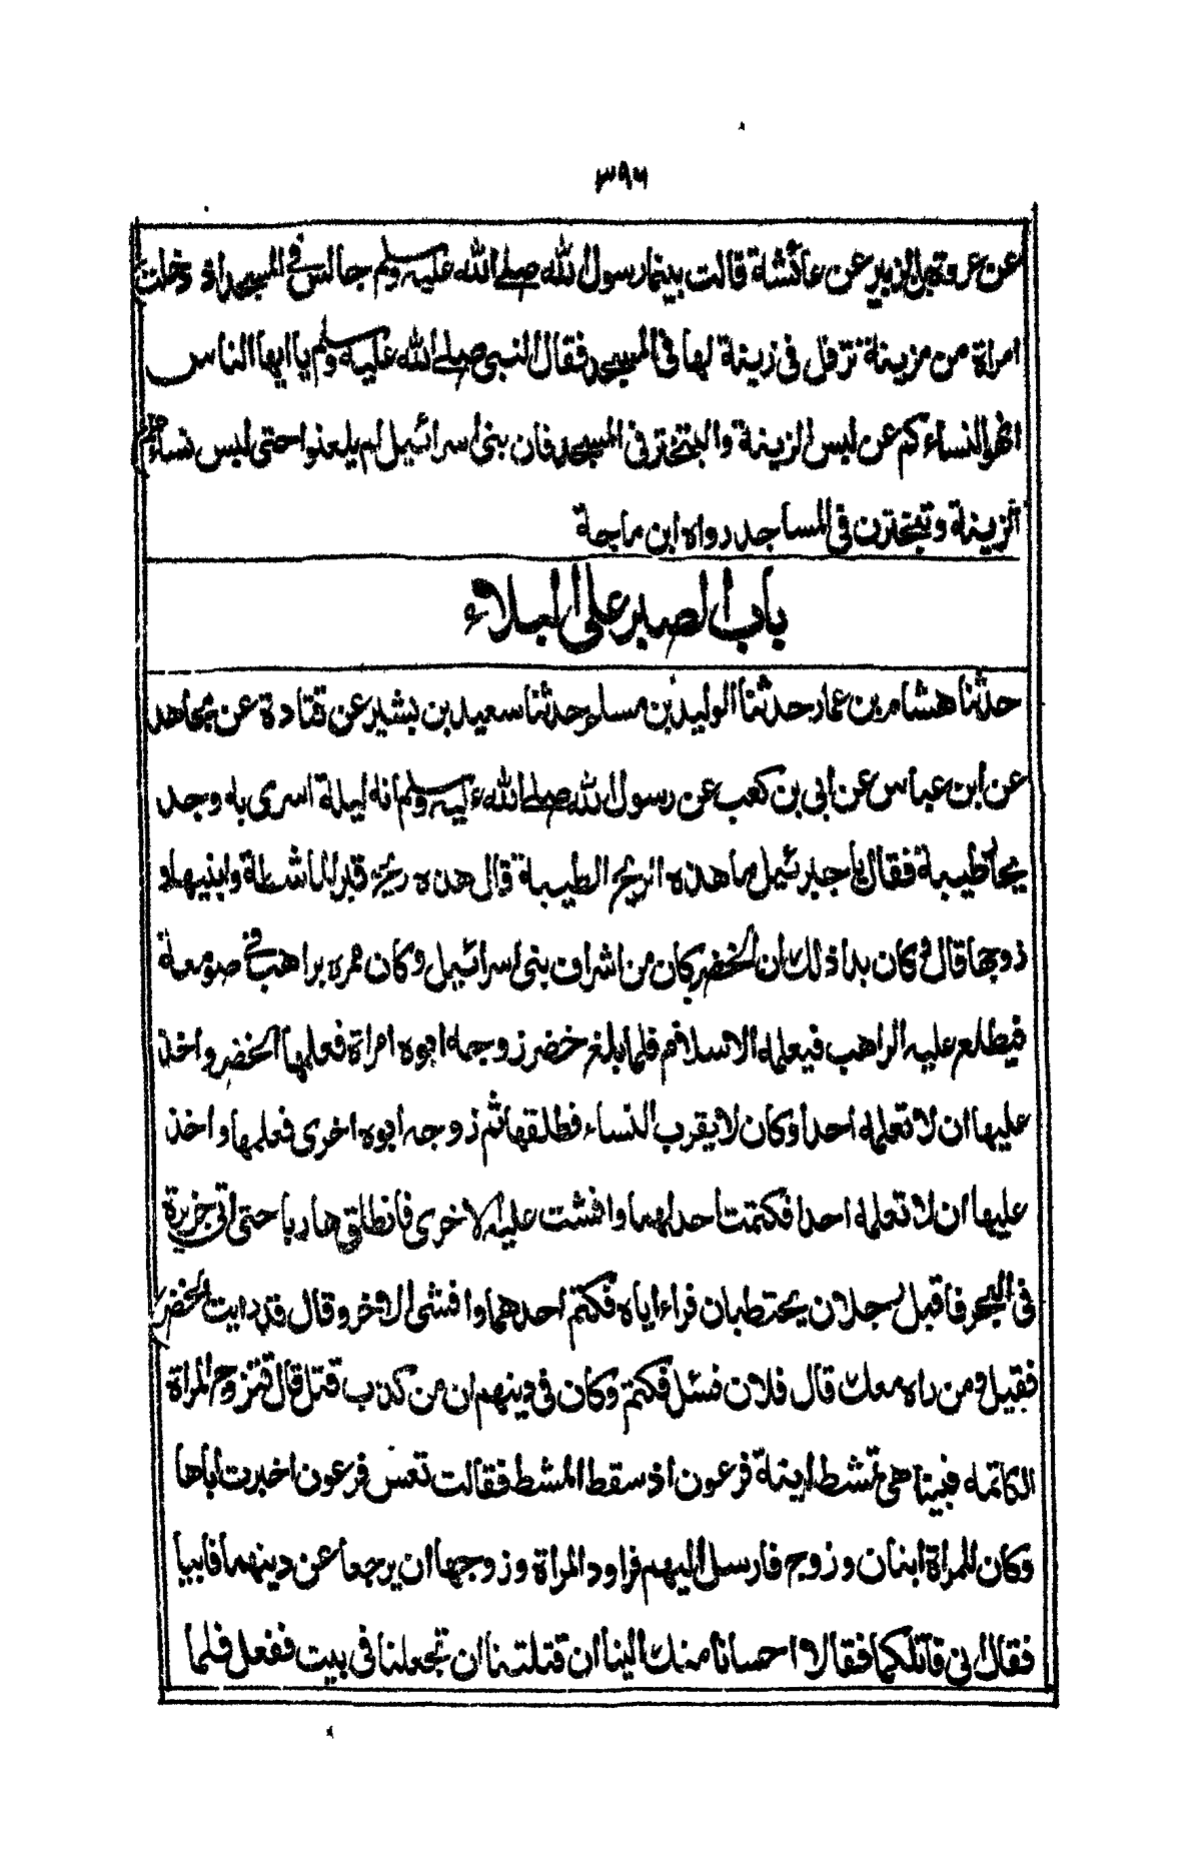 ٣٩٦
عن عروة بن الزبير عن عائشة قالت بينما رسول الله صلى الله عليه وسلم جالس في المسجد اذ دخلت
امراة من مزينة ترفل في زينة لها في المسجد فقال النبي صلى الله عليه وسلم يا ايها الناس
انهوا نساءكم عن لبس الزينة والتبختر في المسجد فان بني اسرائيل لم يلعنوا حتى لبس نساءهم
الزينة وتبخترن في المساجد رواه ابن ماجة
باب الصبر على البلاء
حدثنا هشام بن عمار حدثنا الوليد بن مسلم حدثنا سعيد بن بشير عن قتادة عن مجاهد
عن ابن عباس عن ابي بن كعب عن رسول الله صلى الله عليه وسلم انه ليلة اسري به وجد
ريحا طيبة فقال يا جبرئيل ما هذه الريح الطيبة قال هذه ريح قبر الماشطة وابنيها و
زوجها قال وكان بدا ذلك ان الخضر كان من اشراف بني اسرائيل وكان ممره براهب في صومعة
فيطلع عليه الراهب فيعلمه الاسلام فلما بلغ خضر زوجه ابوه امراة فعلمها الخضر واخذ
عليها ان لا تعلمه احدا وكان لا يقرب النساء فطلقها ثم زوجه ابوه اخرى فعلمها واخذ
عليها ان لا تعلمه احدا فكتمت احدٰهما وافشت عليه الاخرى فانطلق هاربا حتى اتى جزيرة
في البحر فاقبل رجلان يحتطبان فراءاياه فكتم احدهما وافشى الاخر وقال قد رايت الخضر
فقيل ومن راه معك قال فلان فسئل فكتم وكان في دينهم ان من كذب قتل قال فتزوج المراة
الكاتمة فبينا هي تمشط ابنة فرعون اذ سقط المشط فقالت تعس فرعون اخبرت اباها
وكان للمراة ابنان وزوج فارسل اليهم فراود المراة وزوجها ان يرجعا عن دينهما فابيا
فقال اني قاتلكما فقالا احسانا منك الينا ان قتلتنا ان تجعلنا في بيت ففعل فلما